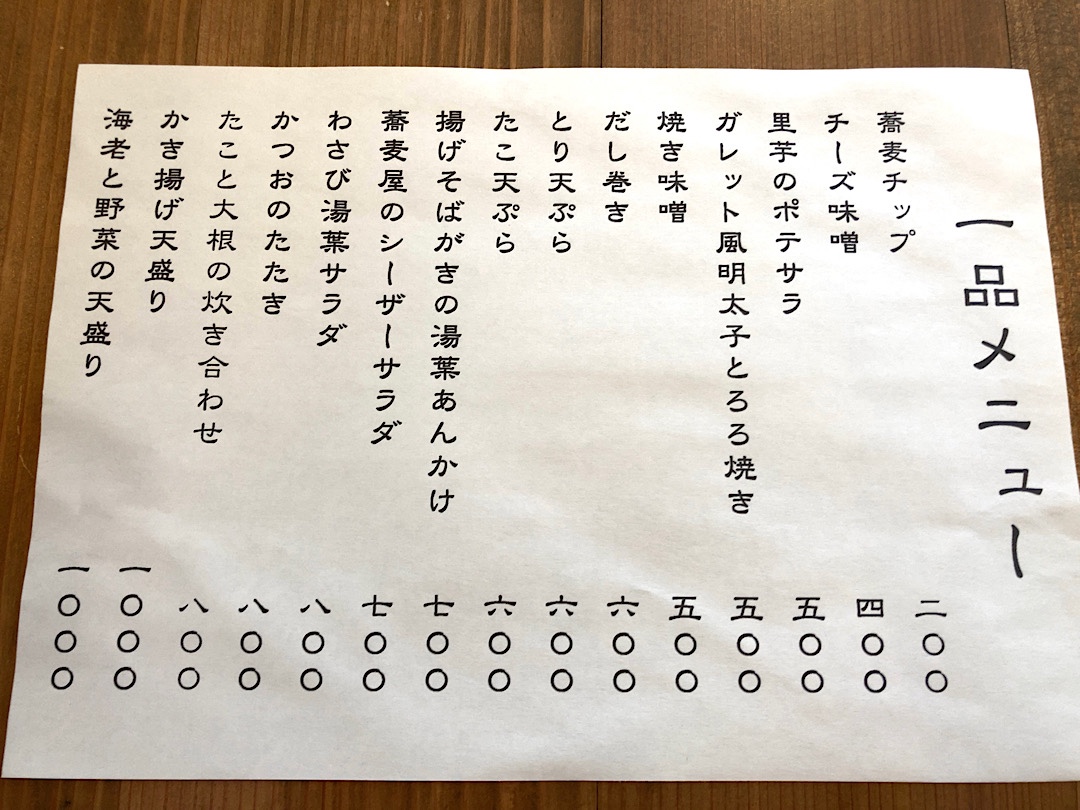 一品メニュー
蕎麦チップ 二〇〇
チーズ味噌 四〇〇
里芋のポテサラ 五〇〇
ガレット風明太子とろろ焼き 五〇〇
焼き味噌 五〇〇
だし巻き 六〇〇
とり天ぷら 六〇〇
たこ天ぷら 六〇〇
揚げそばがきの湯葉あんかけ 七〇〇
蕎麦屋のシーザーサラダ 七〇〇
わさび湯葉サラダ 八〇〇
かつおのたたき 八〇〇
たこと大根の炊き合わせ 八〇〇
かき揚げ天盛り 一〇〇〇
海老と野菜の天盛り 一〇〇〇